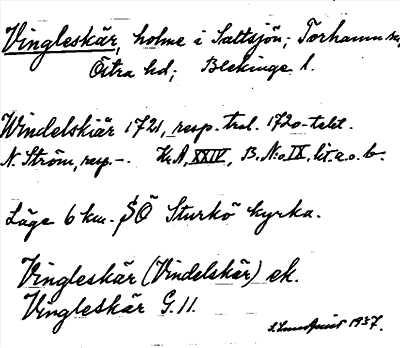 Vingleskär, holme i Saltsjön; Torhamn sn,
Östra hd; Blekinge l.
Windelskiär 1721, resp. trol. 1720-talet.
N. Ström, resp. –. K. A, XXIV, B. N:o IX, lit. a. o. b.
Läge 6 km. SÖ Sturkö kyrka.
Vingleskär (Vindelskär) ek.
Vingleskär G. 11.
1937.